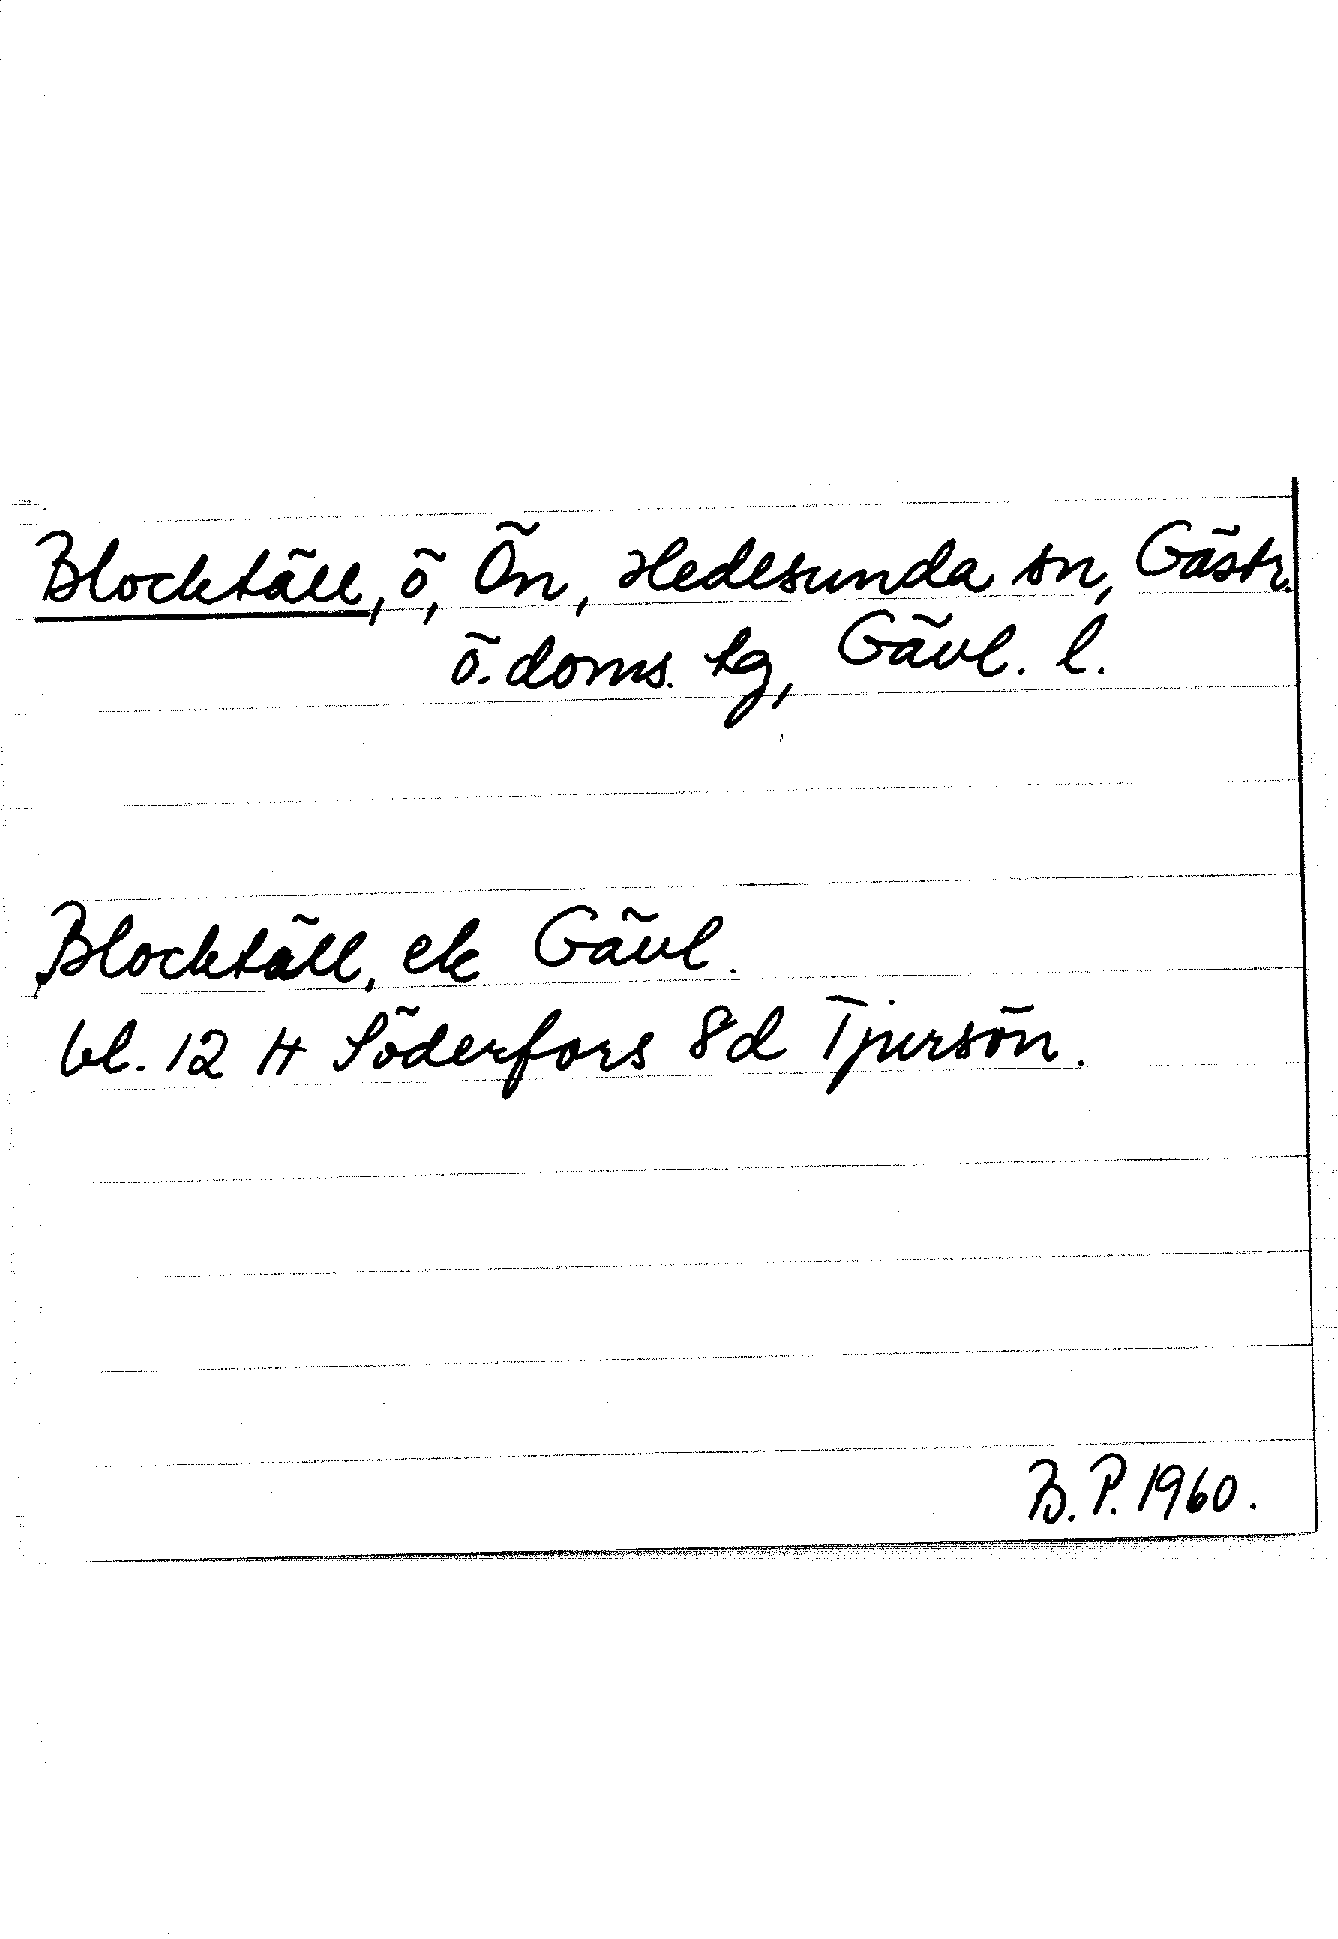 Blocktäll, ö, Ön, Hedesunda sn, Gästr.
ö. doms. tg, Gävl. l.
Blocktäll, ek Gävl.
bl. 12 H Söderfors 8d Tjursön.
B. P. 1960.